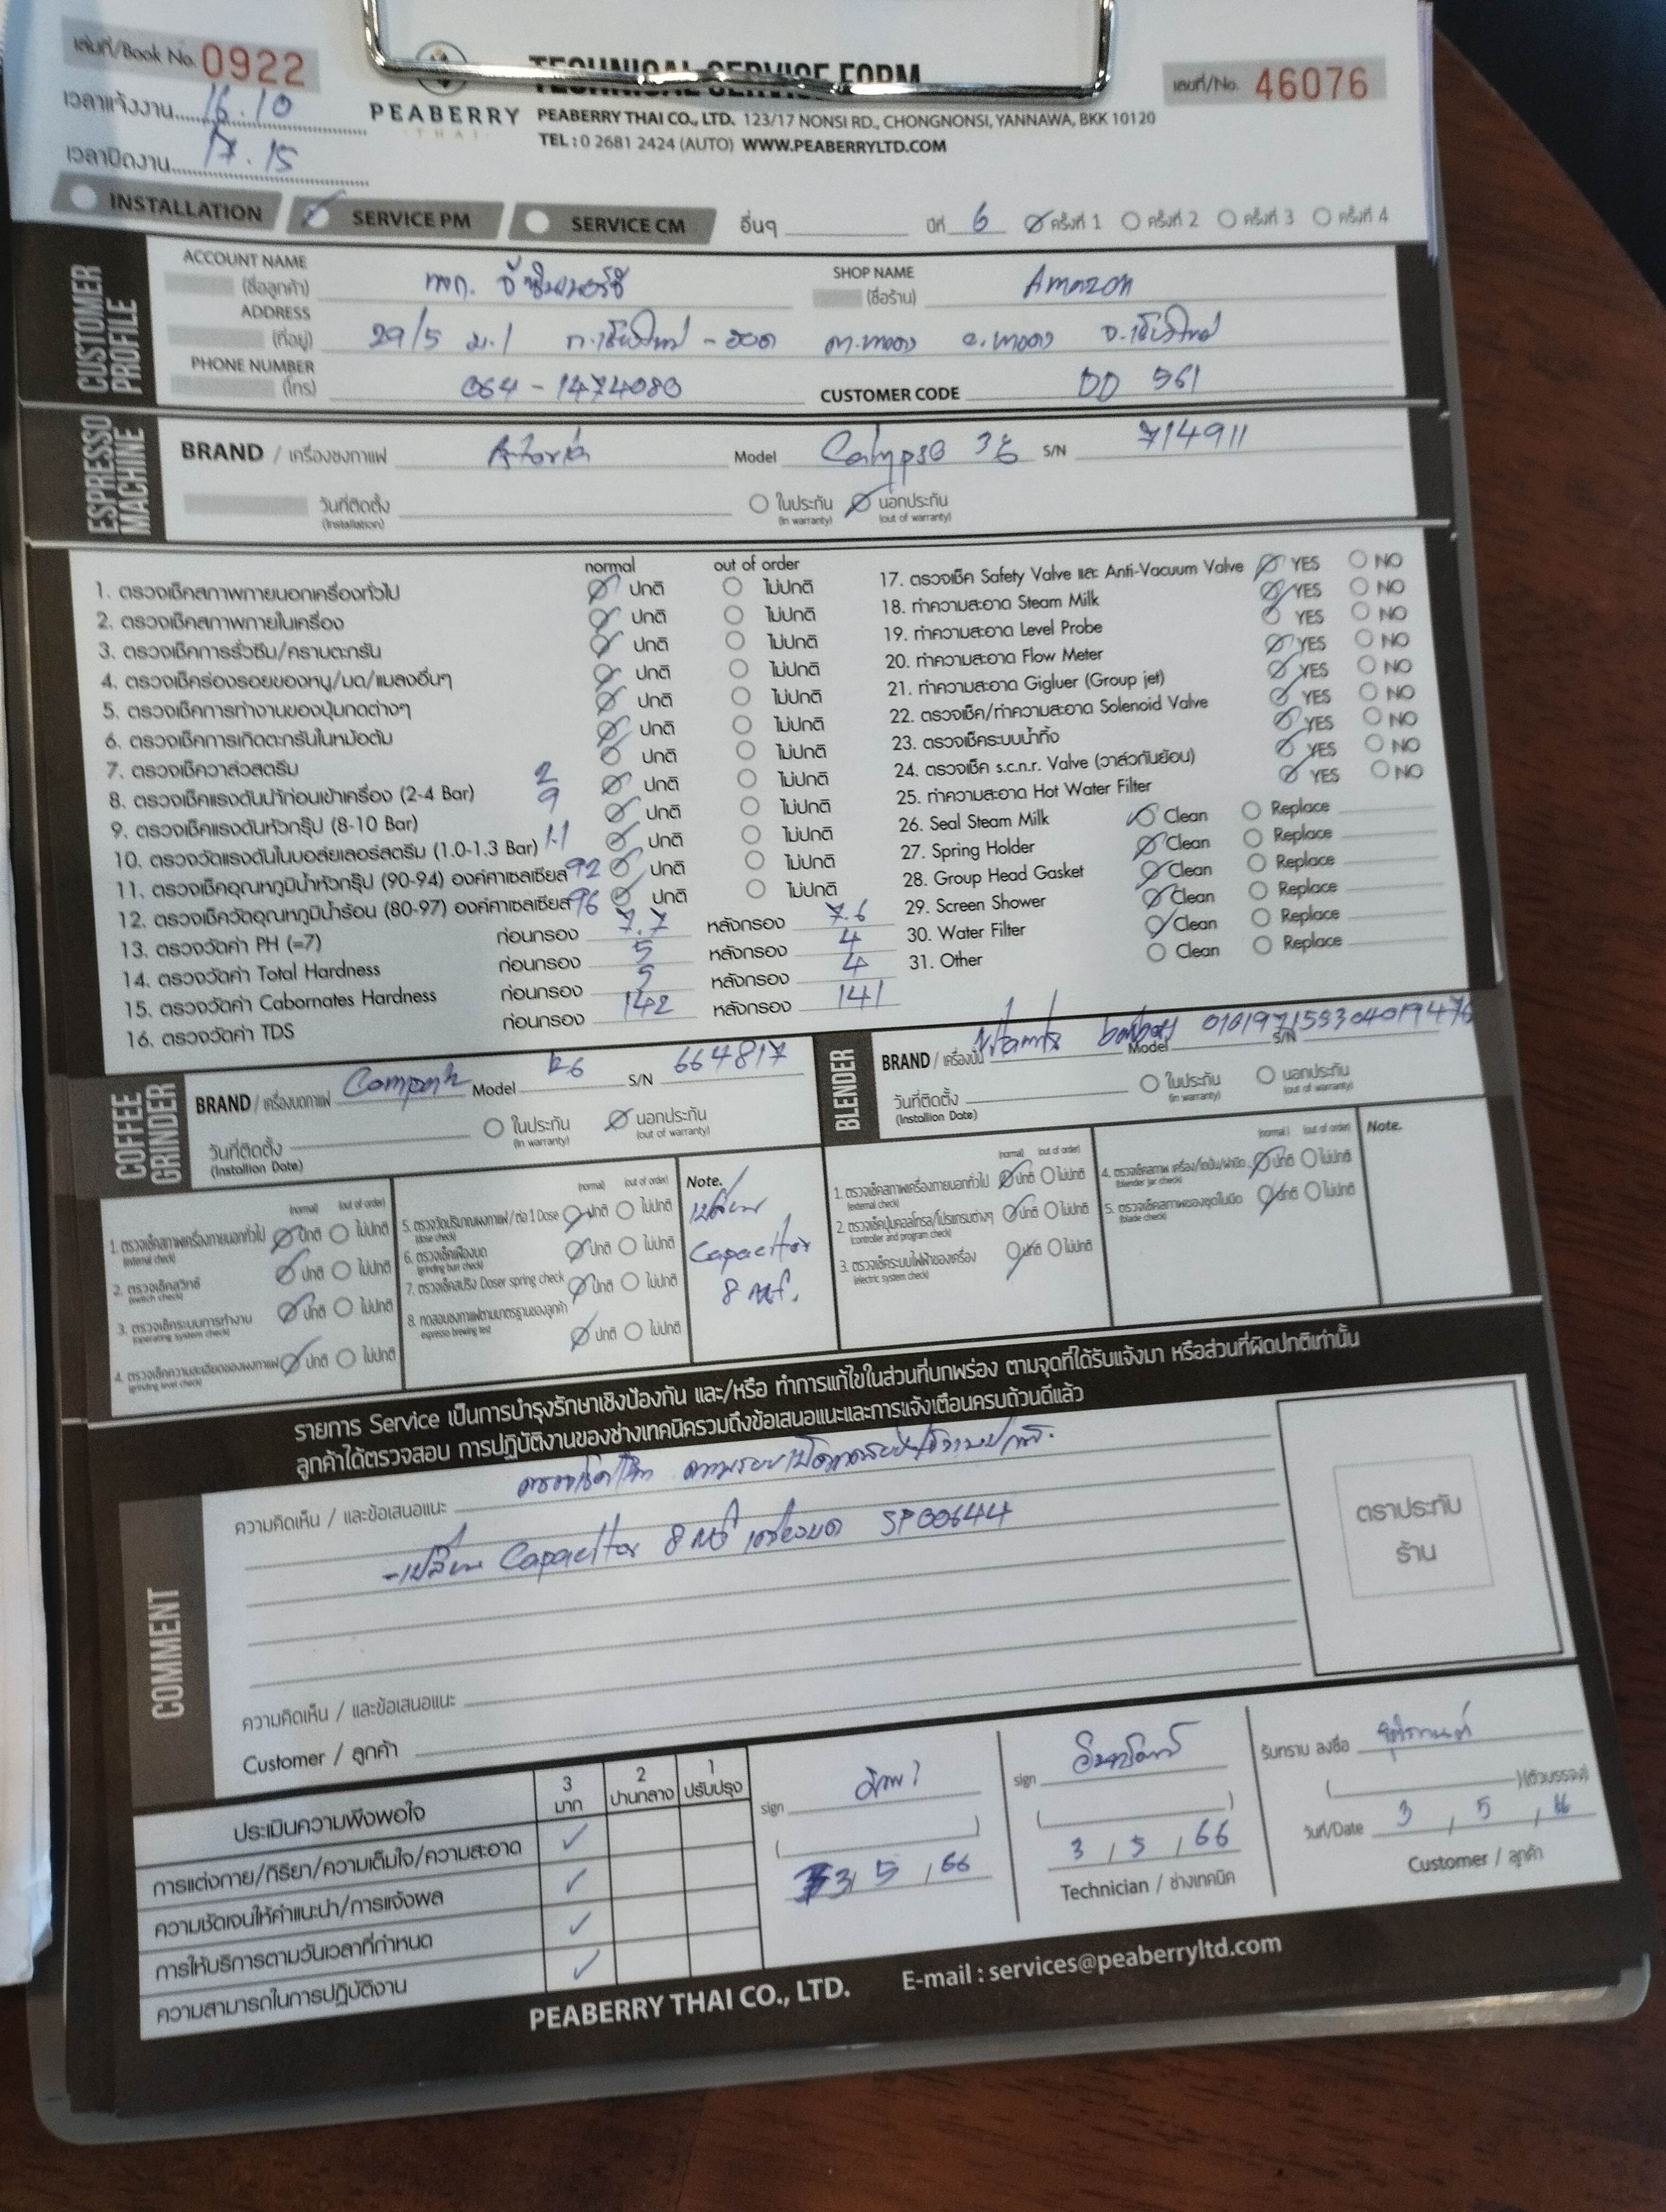 เล่มที่/Book No. 0922
TECHNICAL SERVICE FORM
เลขที่/No. 46076
เวลาแจ้งงาน 16.10
PEABERRY THAI
PEABERRY THAI CO., LTD. 123/17 NONSI RD., CHONGNONSI, YANNAWA, BKK 10120
เวลาปิดงาน 17.15
TEL : 0 2681 2424 (AUTO) WWW.PEABERRYLTD.COM
INSTALLATION SERVICE PM SERVICE CM อื่นๆ ปีที่ 6 ครั้งที่ 1 ครั้งที่ 2 ครั้งที่ 3 ครั้งที่ 4
CUSTOMER PROFILE
ACCOUNT NAME (ชื่อลูกค้า) หจก.
SHOP NAME (ชื่อร้าน) Amazon
ADDRESS (ที่อยู่) 29/5 ม.1 ถ.เชียงใหม่ - ฮอด จ.เชียงใหม่
PHONE NUMBER (โทร) 064 - 1474080
CUSTOMER CODE DD 561
ESPRESSO MACHINE
BRAND / เครื่องชงกาแฟ Astoria Model Calypso 3G S/N 714911
วันที่ติดตั้ง (Installation) ในประกัน (in warranty) นอกประกัน (out of warranty)
normal out of order
1. ตรวจเช็คสภาพภายนอกเครื่องทั่วไป ปกติ ไม่ปกติ
2. ตรวจเช็คสภาพภายในเครื่อง ปกติ ไม่ปกติ
3. ตรวจเช็คการรั่วซึม/คราบตะกรัน ปกติ ไม่ปกติ
4. ตรวจเช็คร่องรอยของหนู/มด/แมลงอื่นๆ ปกติ ไม่ปกติ
5. ตรวจเช็คการทำงานของปุ่มกดต่างๆ ปกติ ไม่ปกติ
6. ตรวจเช็คการเกิดตะกรันในหม้อต้ม ปกติ ไม่ปกติ
7. ตรวจเช็ควาล์วสตรีม ปกติ ไม่ปกติ
8. ตรวจเช็คแรงดันน้ำก่อนเข้าเครื่อง (2-4 Bar) 2 ปกติ ไม่ปกติ
9. ตรวจเช็คแรงดันหัวกรุ๊ป (8-10 Bar) 9 ปกติ ไม่ปกติ
10. ตรวจวัดแรงดันในบอล์ยเลอร์สตรีม (1.0-1.3 Bar) 1.1 ปกติ ไม่ปกติ
11. ตรวจเช็คอุณหภูมิน้ำหัวกรุ๊ป (90-94) องค์ศาเซลเซียส 92 ปกติ ไม่ปกติ
12. ตรวจเช็ควัดอุณหภูมิน้ำร้อน (80-97) องค์ศาเซลเซียส 96 ปกติ ไม่ปกติ
13. ตรวจวัดค่า PH (=7) ก่อนกรอง 7.7 หลังกรอง 7.6
14. ตรวจวัดค่า Total Hardness ก่อนกรอง 5 หลังกรอง 4
15. ตรวจวัดค่า Cabornates Hardness ก่อนกรอง 5 หลังกรอง 4
16. ตรวจวัดค่า TDS ก่อนกรอง 142 หลังกรอง 141
17. ตรวจเช็ค Safety Valve และ Anti-Vacuum Valve YES NO
18. ทำความสะอาด Steam Milk YES NO
19. ทำความสะอาด Level Probe YES NO
20. ทำความสะอาด Flow Meter YES NO
21. ทำความสะอาด Gigluer (Group jet) YES NO
22. ตรวจเช็ค/ทำความสะอาด Solenoid Valve YES NO
23. ตรวจเช็คระบบน้ำทิ้ง YES NO
24. ตรวจเช็ค s.c.n.r. Valve (วาล์วกันย้อน) YES NO
25. ทำความสะอาด Hot Water Filter YES NO
26. Seal Steam Milk Clean Replace
27. Spring Holder Clean Replace
28. Group Head Gasket Clean Replace
29. Screen Shower Clean Replace
30. Water Filter Clean Replace
31. Other Clean Replace
COFFEE GRINDER
BRAND / เครื่องบดกาแฟ Model K6 S/N 664817
วันที่ติดตั้ง (Installion Date) ในประกัน (in warranty) นอกประกัน (out of warranty)
(normal) (out of order)
1. ตรวจเช็คสภาพเครื่องภายนอกทั่วไป (external check) ปกติ ไม่ปกติ
2. ตรวจเช็คสวิทซ์ (switch check) ปกติ ไม่ปกติ
3. ตรวจเช็คระบบการทำงาน (operating system check) ปกติ ไม่ปกติ
4. ตรวจเช็คความละเอียดของผงกาแฟ (grinding level check) ปกติ ไม่ปกติ
(normal) (out of order)
5. ตรวจวัดปริมาณผงกาแฟ/ต่อ 1 Dose (dose check) ปกติ ไม่ปกติ
6. ตรวจเช็คเฟืองบด (grinding burr check) ปกติ ไม่ปกติ
7. ตรวจเช็คสปริง Doser spring check ปกติ ไม่ปกติ
8. ทดสอบชงกาแฟตามมาตรฐานของลูกค้า espresso brewing test ปกติ ไม่ปกติ
Note.
เปลี่ยน
Capacitor
8 mf.
BLENDER
BRAND / เครื่องปั่น Model S/N
วันที่ติดตั้ง (Installion Date) ในประกัน (in warranty) นอกประกัน (out of warranty)
(normal) (out of order)
1. ตรวจเช็คสภาพเครื่องภายนอกทั่วไป (external check) ปกติ ไม่ปกติ
2. ตรวจเช็คปุ่มคอลโทรล/โปรแกรมต่างๆ (controller and program check) ปกติ ไม่ปกติ
3. ตรวจเช็คระบบไฟฟ้าของเครื่อง (electric system check) ปกติ ไม่ปกติ
(normal) (out of order)
4. ตรวจเช็คสภาพ เครื่อง/โถปั่น/ฝาปิด (blender jar check) ปกติ ไม่ปกติ
5. ตรวจเช็คสภาพของชุดใบมีด (blade check) ปกติ ไม่ปกติ
Note.
รายการ Service เป็นการบำรุงรักษาเชิงป้องกัน และ/หรือ ทำการแก้ไขในส่วนที่บกพร่อง ตามจุดที่ได้รับแจ้งมา หรือส่วนที่ผิดปกติเท่านั้น
ลูกค้าได้ตรวจสอบ การปฏิบัติงานของช่างเทคนิครวมถึงข้อเสนอแนะและการแจ้งเตือนครบถ้วนดีแล้ว
COMMENT
ความคิดเห็น / และข้อเสนอแนะ
-เปลี่ยน Capacitor 8 mf เครื่องบด SP00644
ตราประทับ
ร้าน
ความคิดเห็น / และข้อเสนอแนะ
Customer / ลูกค้า
ประเมินความพึงพอใจ 3 มาก 2 ปานกลาง 1 ปรับปรุง
การแต่งกาย/กิริยา/ความเต็มใจ/ความสะอาด
ความชัดเจนให้คำแนะนำ/การแจ้งผล
การให้บริการตามวันเวลาที่กำหนด
ความสามารถในการปฏิบัติงาน
sign
3 / 5 / 66
sign
3 / 5 / 66
Technician / ช่างเทคนิค
รับทราบ ลงชื่อ
(ตัวบรรจง)
วันที่/Date 3 / 5 / 66
Customer / ลูกค้า
PEABERRY THAI CO., LTD. E-mail : services@peaberryltd.com